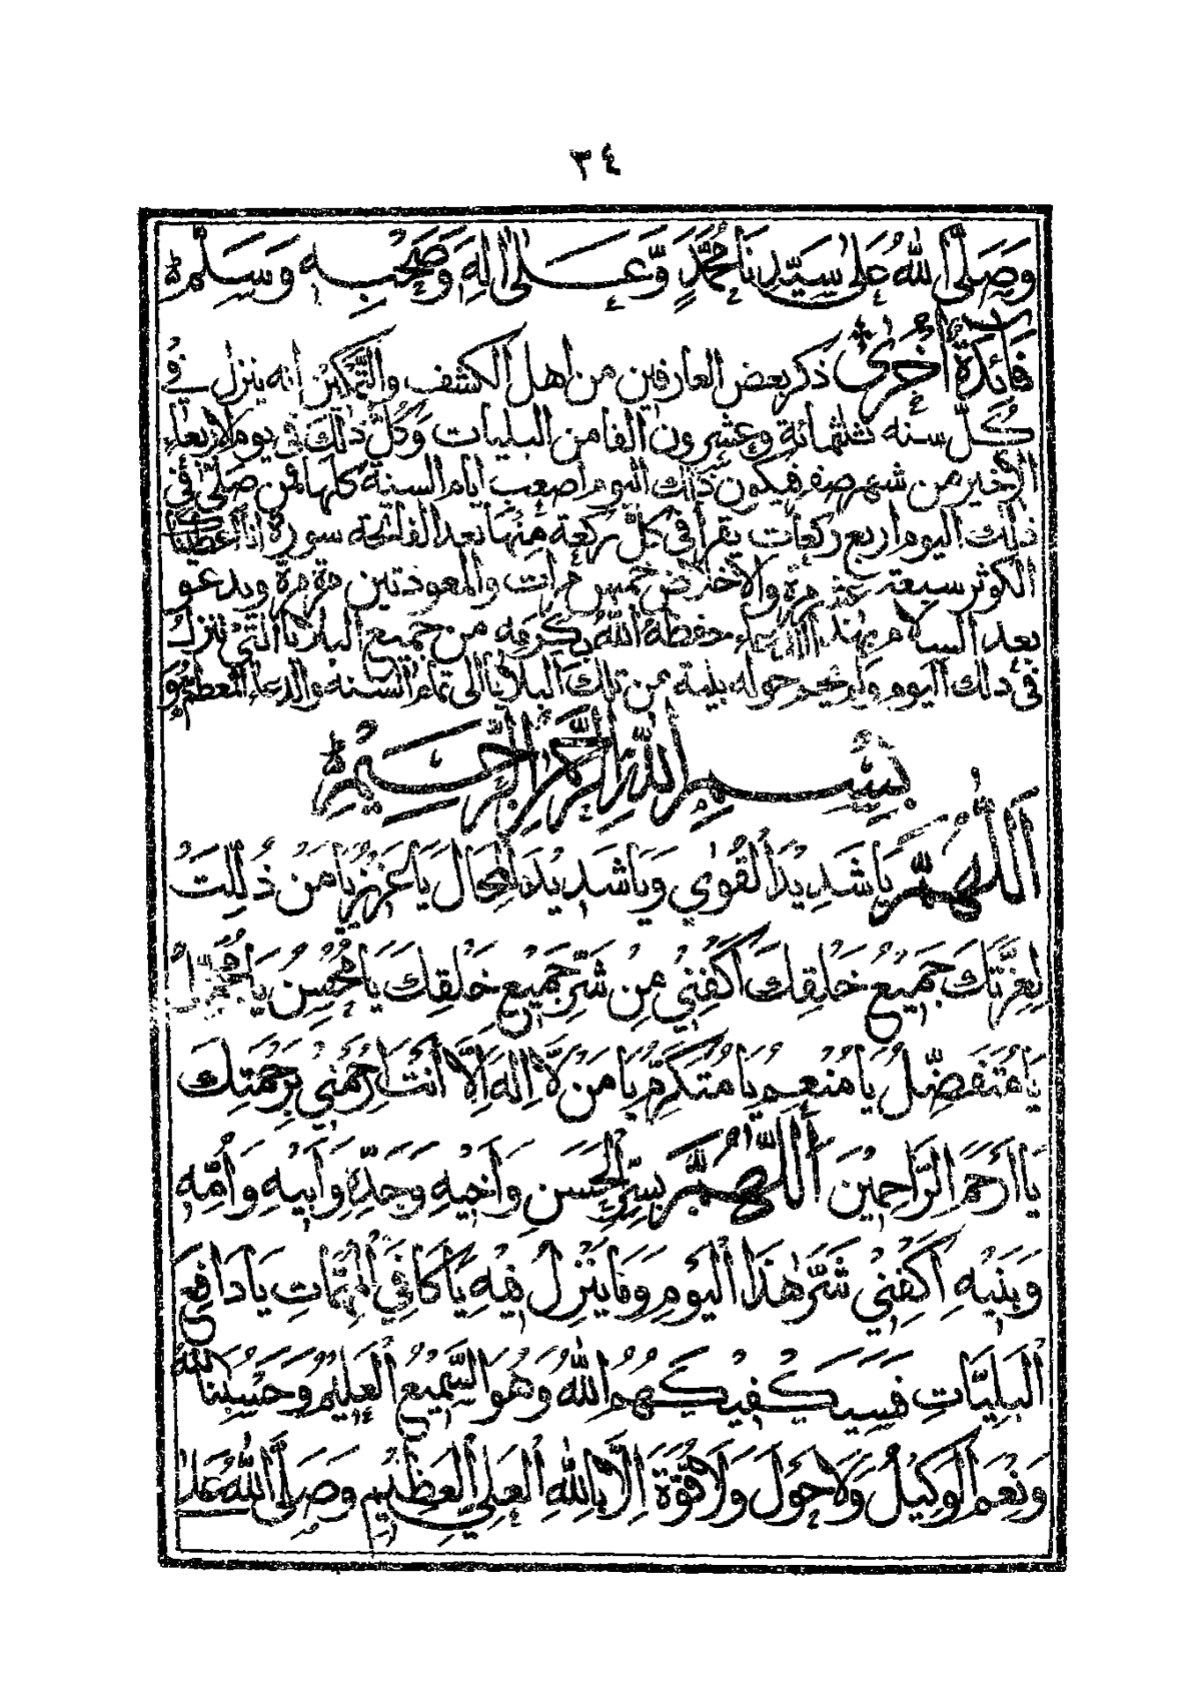 ٣٤
وَصَلَّى اللّٰهُ عَلٰى سَيِّدِنَا مُحَمَّدٍ وَّعَلٰى اٰلِهٖ وَصَحْبِهٖ وَسَلَّمْ
فَائِدَةٌ اُخْرٰى ذكر بعض العارفين من اهل الكشف والتَّمكين انه ينزل فى
كُلّ سنه ثلثمائة وعشرون الفا من البليات وَكُلّ ذٰلكَ فى يوم الاربعاء
الاخير من شهر صفر فيكون ذٰلك اليوم اصعب ايام السنة كلها فمن صَلّٰى فى
ذٰلك اليوم اربع ركعات يقرأ فى كلّ ركعة منها بعد الفاتحة سورة انا اعطينا
الكوثر سبعة عشر مرة والاخلاص خمس مرات والمعوذتين مرة مرة ويدعو
بعد السلام بهٰذا الدعاء حفظهُ اللّٰهُ بكرمه من جميع البلايا التى تنزل
فى ذلك اليوم ولم يحم حوله بلية من تلك البلايا الى تمام السنه والدعاء المعظم هو
بِسْمِ اللّٰهِ الرَّحْمٰنِ الرَّحِيْمِ
اَللّٰهُمَّ يَا شَدِيْدَ الْقُوٰى وَيَا شَدِيْدَ الْمِحَالِ يَا عَزِيْزُ يَا مَنْ ذُلِّلَتْ
لِعِزَّتِكَ جَمِيْعُ خَلْقِكَ اَكْفِنِىْ مِنْ شَرِّ جَمِيْعِ خَلْقِكَ يَا مُحْسِنُ يَا مُجَمِّلُ
يَا مُتَفَضِّلُ يَا مُنْعِمُ يَا مُتَكَرِّمُ يَا مَنْ لَّا اِلٰهَ اِلَّا اَنْتَ ارْحَمْنِىْ بِرَحْمَتِكَ
يَا اَرْحَمَ الرَّاحِمِيْنَ اَللّٰهُمَّ بِسِرِّ الْحَسَنِ وَاَخِيْهِ وَجَدِّهٖ وَاَبِيْهِ وَاُمِّهٖ
وَبَنِيْهِ اَكْفِنِىْ شَرَّ هٰذَا الْيَوْمِ وَمَا يَنْزِلُ فِيْهِ يَا كَافِيَ الْمُهِمَّاتِ يَا دَافِعَ
الْبَلِيَّاتِ فَسَيَكْفِيْكَهُمُ اللّٰهُ وَهُوَ السَّمِيْعُ الْعَلِيْمُ وَحَسْبُنَا اللّٰهُ
وَنِعْمَ الْوَكِيْلُ وَلَا حَوْلَ وَلَا قُوَّةَ اِلَّا بِاللّٰهِ الْعَلِىِّ الْعَظِيْمِ وَصَلَّى اللّٰهُ عَلٰى